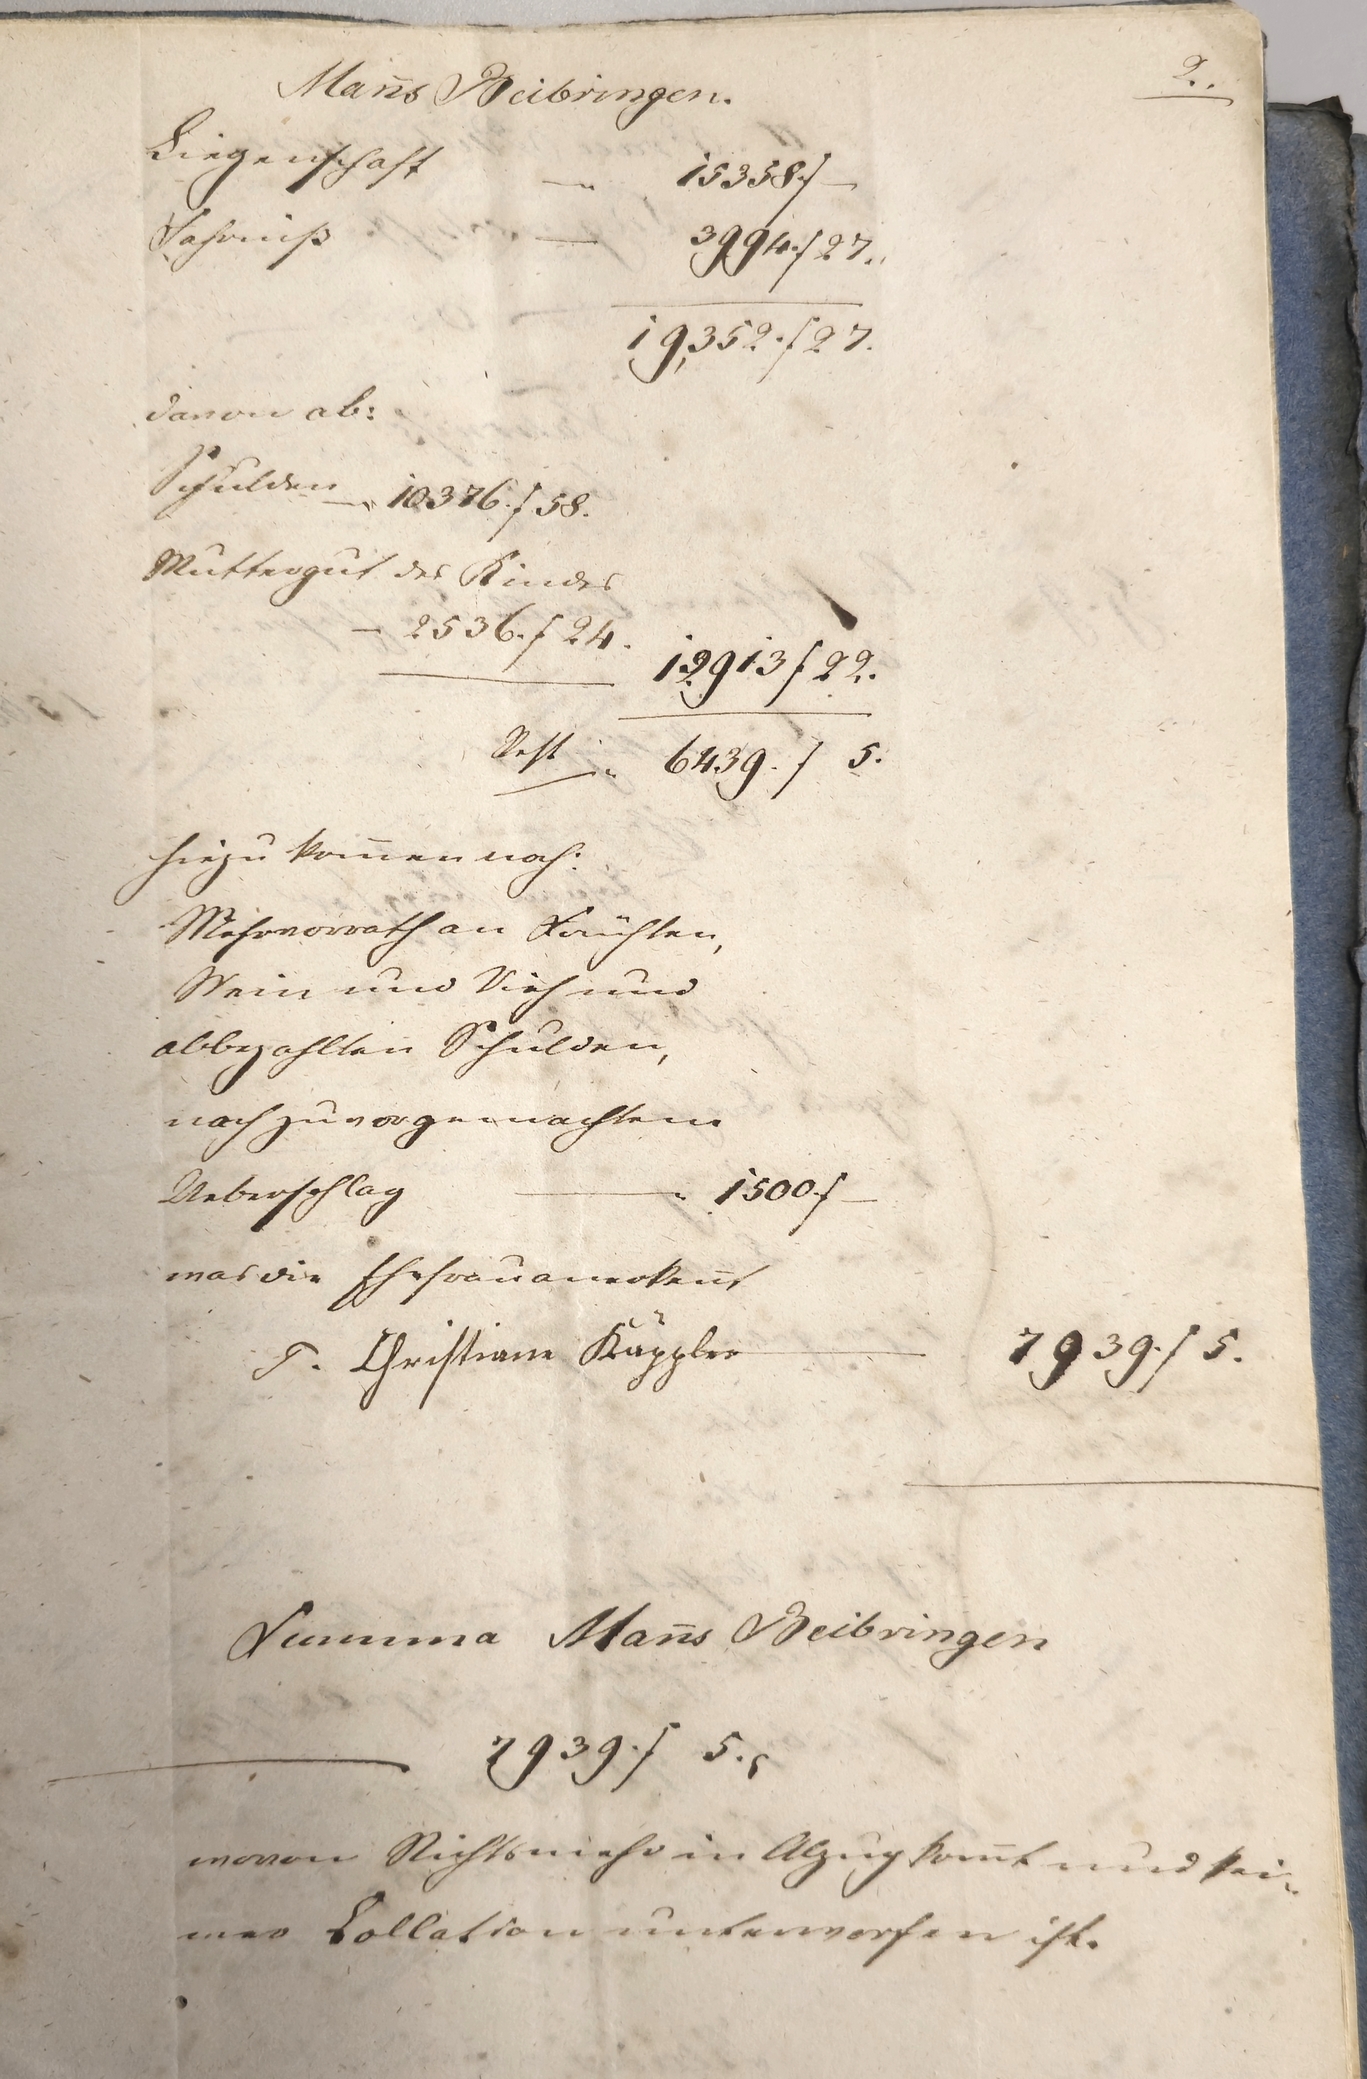 2.
Man̄s Beibringen.
Liegenschaft — 15358. f —
Fahrniß — 3994. f 27.
19,352. f 27.
davon ab:
Schulden — 10376. f 58.
Muttergut des Kindes
— 2536. f 24.
12913 f 22.
Rest 6439. f 5.
hiezu kom̄en noch:
Mehrvorrath an Früchten,
Wein und Vieh und
abbezahlten Schulden,
nach zuvor gemachtem
Ueberschlag — 1500. f —
was die Ehefrau anerken̄t
T. Christiane Käppler — 7939. f 5.
Summa Man̄s Beibringen
— 7939. f 5.
wovon Nichts mehr in Abzug kom̄t und kei-
ner Collation unterworfen ist.